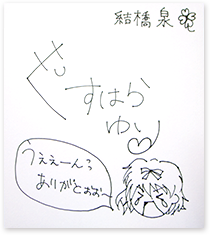 結橋 泉
すはら
ゆい
うええーんっ
ありがとおお〜